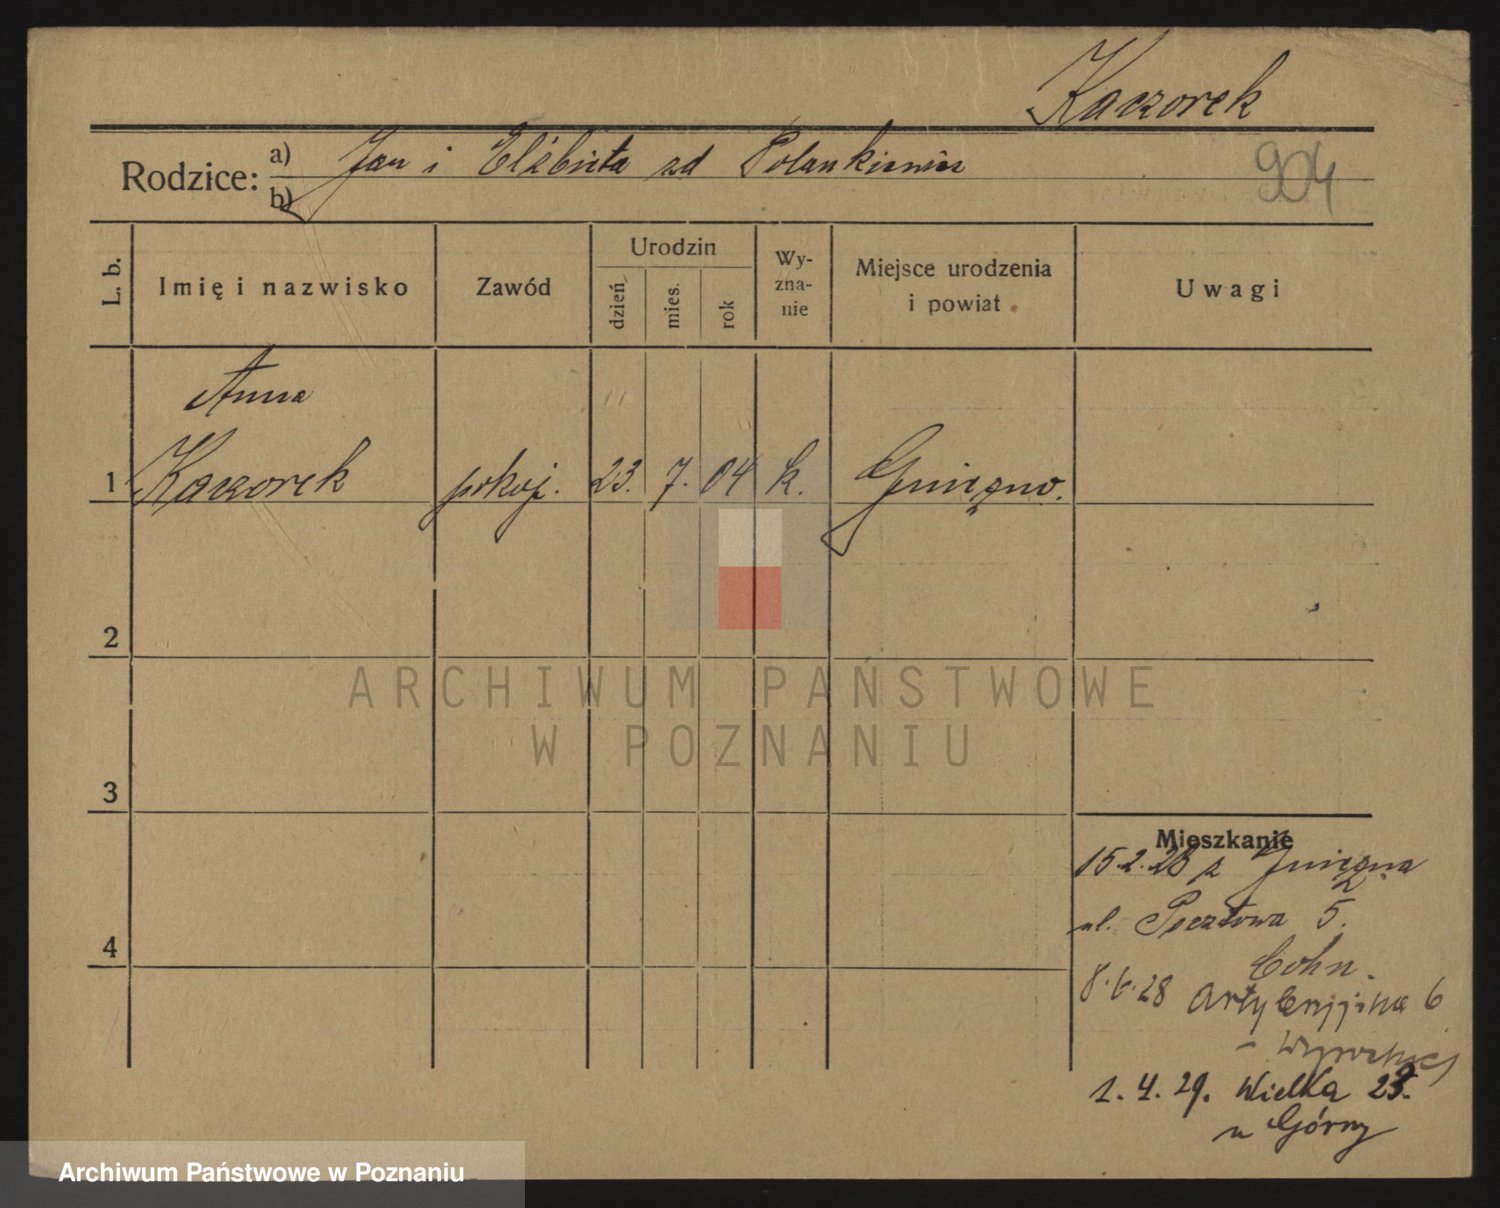 Kaczorek
Rodzice: a) Jan i Elżbieta zd Polankiewicz
b)
904
L. b.
Imię i nazwisko
Zawód
Urodzin
dzień
mies.
rok
Wy-
zna-
nie
Miejsce urodzenia
i powiat
Uwagi
Anna
1 Kaczorek pokoj. 23. 7. 04 k. Gniezno.
2
3
4
Mieszkanie
15.2.28 z Gniezna
ul. Pocztowa 5.
Cohn.
8.6.28 Artyleryjska 6
1.4.29. Wielka
u Górny
ARCHIWUM PAŃSTWOWE
W POZNANIU
Archiwum Państwowe w Poznaniu